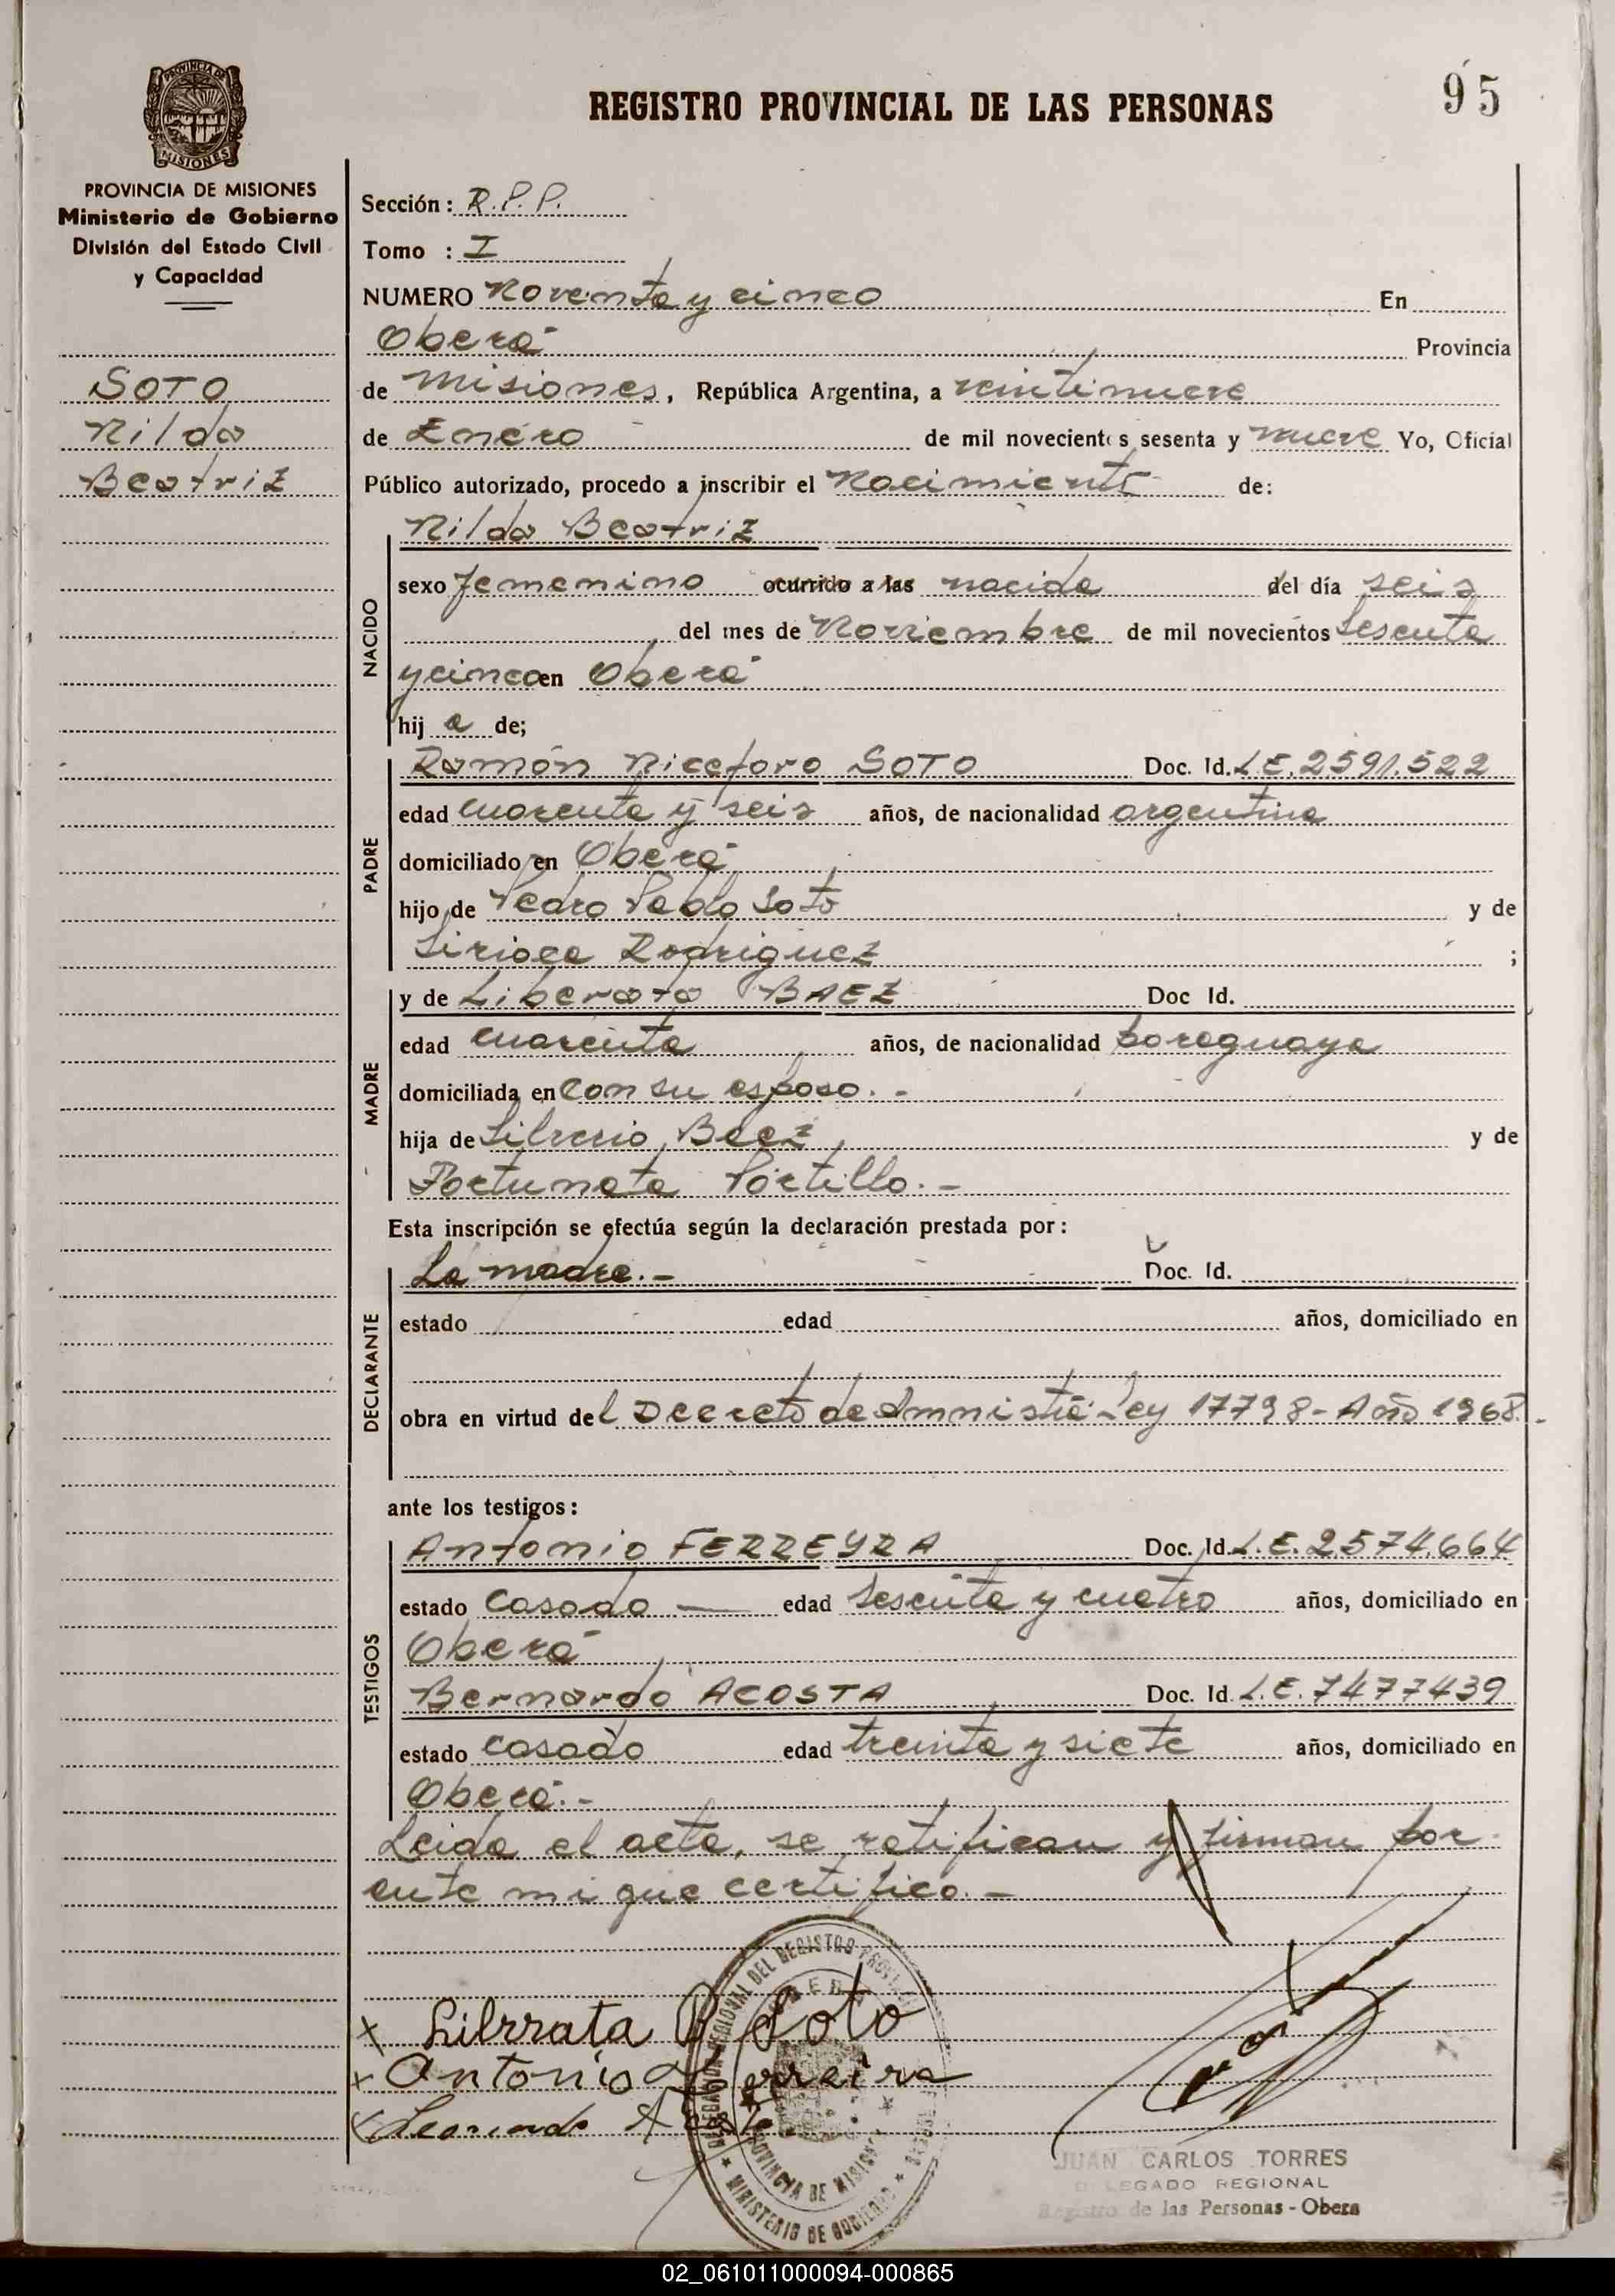 PROVINCIA DE
MISIONES
PROVINCIA DE MISIONES
Ministerio de Gobierno
División del Estado Civil
y Capacidad
SOTO
Nilda
Beatriz
REGISTRO PROVINCIAL DE LAS PERSONAS
95
Sección: R.P.P.
Tomo : I
NUMERO Noventa y cinco En
Oberá Provincia
de Misiones, República Argentina, a veintinueve
de Enero de mil novecientos sesenta y nueve Yo, Oficial
Público autorizado, procedo a inscribir el Nacimiento de:
Nilda Beatriz
NACIDO
sexo femenino ocurrido a las nacida del día seis
del mes de Noviembre de mil novecientos sesenta
y cinco en Oberá
hij a de;
PADRE
Ramón Niceforo SOTO Doc. Id. L.E. 2591.522
edad cuarenta y seis años, de nacionalidad argentina
domiciliado en Oberá
hijo de Pedro Pablo Soto y de
Rodriguez ;
MADRE
y de Liberata BAEZ Doc Id.
edad cuarenta años, de nacionalidad paraguaya
domiciliada en con su esposo.-
hija de Silverio Baez y de
Fortunata Portillo.-
Esta inscripción se efectúa según la declaración prestada por:
DECLARANTE
La madre.- Doc. Id.
estado edad años, domiciliado en
obra en virtud del Decreto de Amnistía-Ley 17798-Año 1968.-
ante los testigos:
TESTIGOS
Antonio FERREYRA Doc. Id. L.E. 2.574.664
estado Casado — edad sesenta y cuatro años, domiciliado en
Oberá
Bernardo ACOSTA Doc. Id. L.E. 7477439
estado casado edad treinta y siete años, domiciliado en
Oberá.-
Leida el acta, se ratifican y firman por
ante mi que certifico.-
x Librrata B Soto
x Antonio Ferreira
x
DELEGACION REGIONAL DEL REGISTRO
PROVINCIA DE MISIONES
MINISTERIO DE GOBIERNO
JUAN CARLOS TORRES
DELEGADO REGIONAL
Registro de las Personas - Obera
02_061011000094-000865